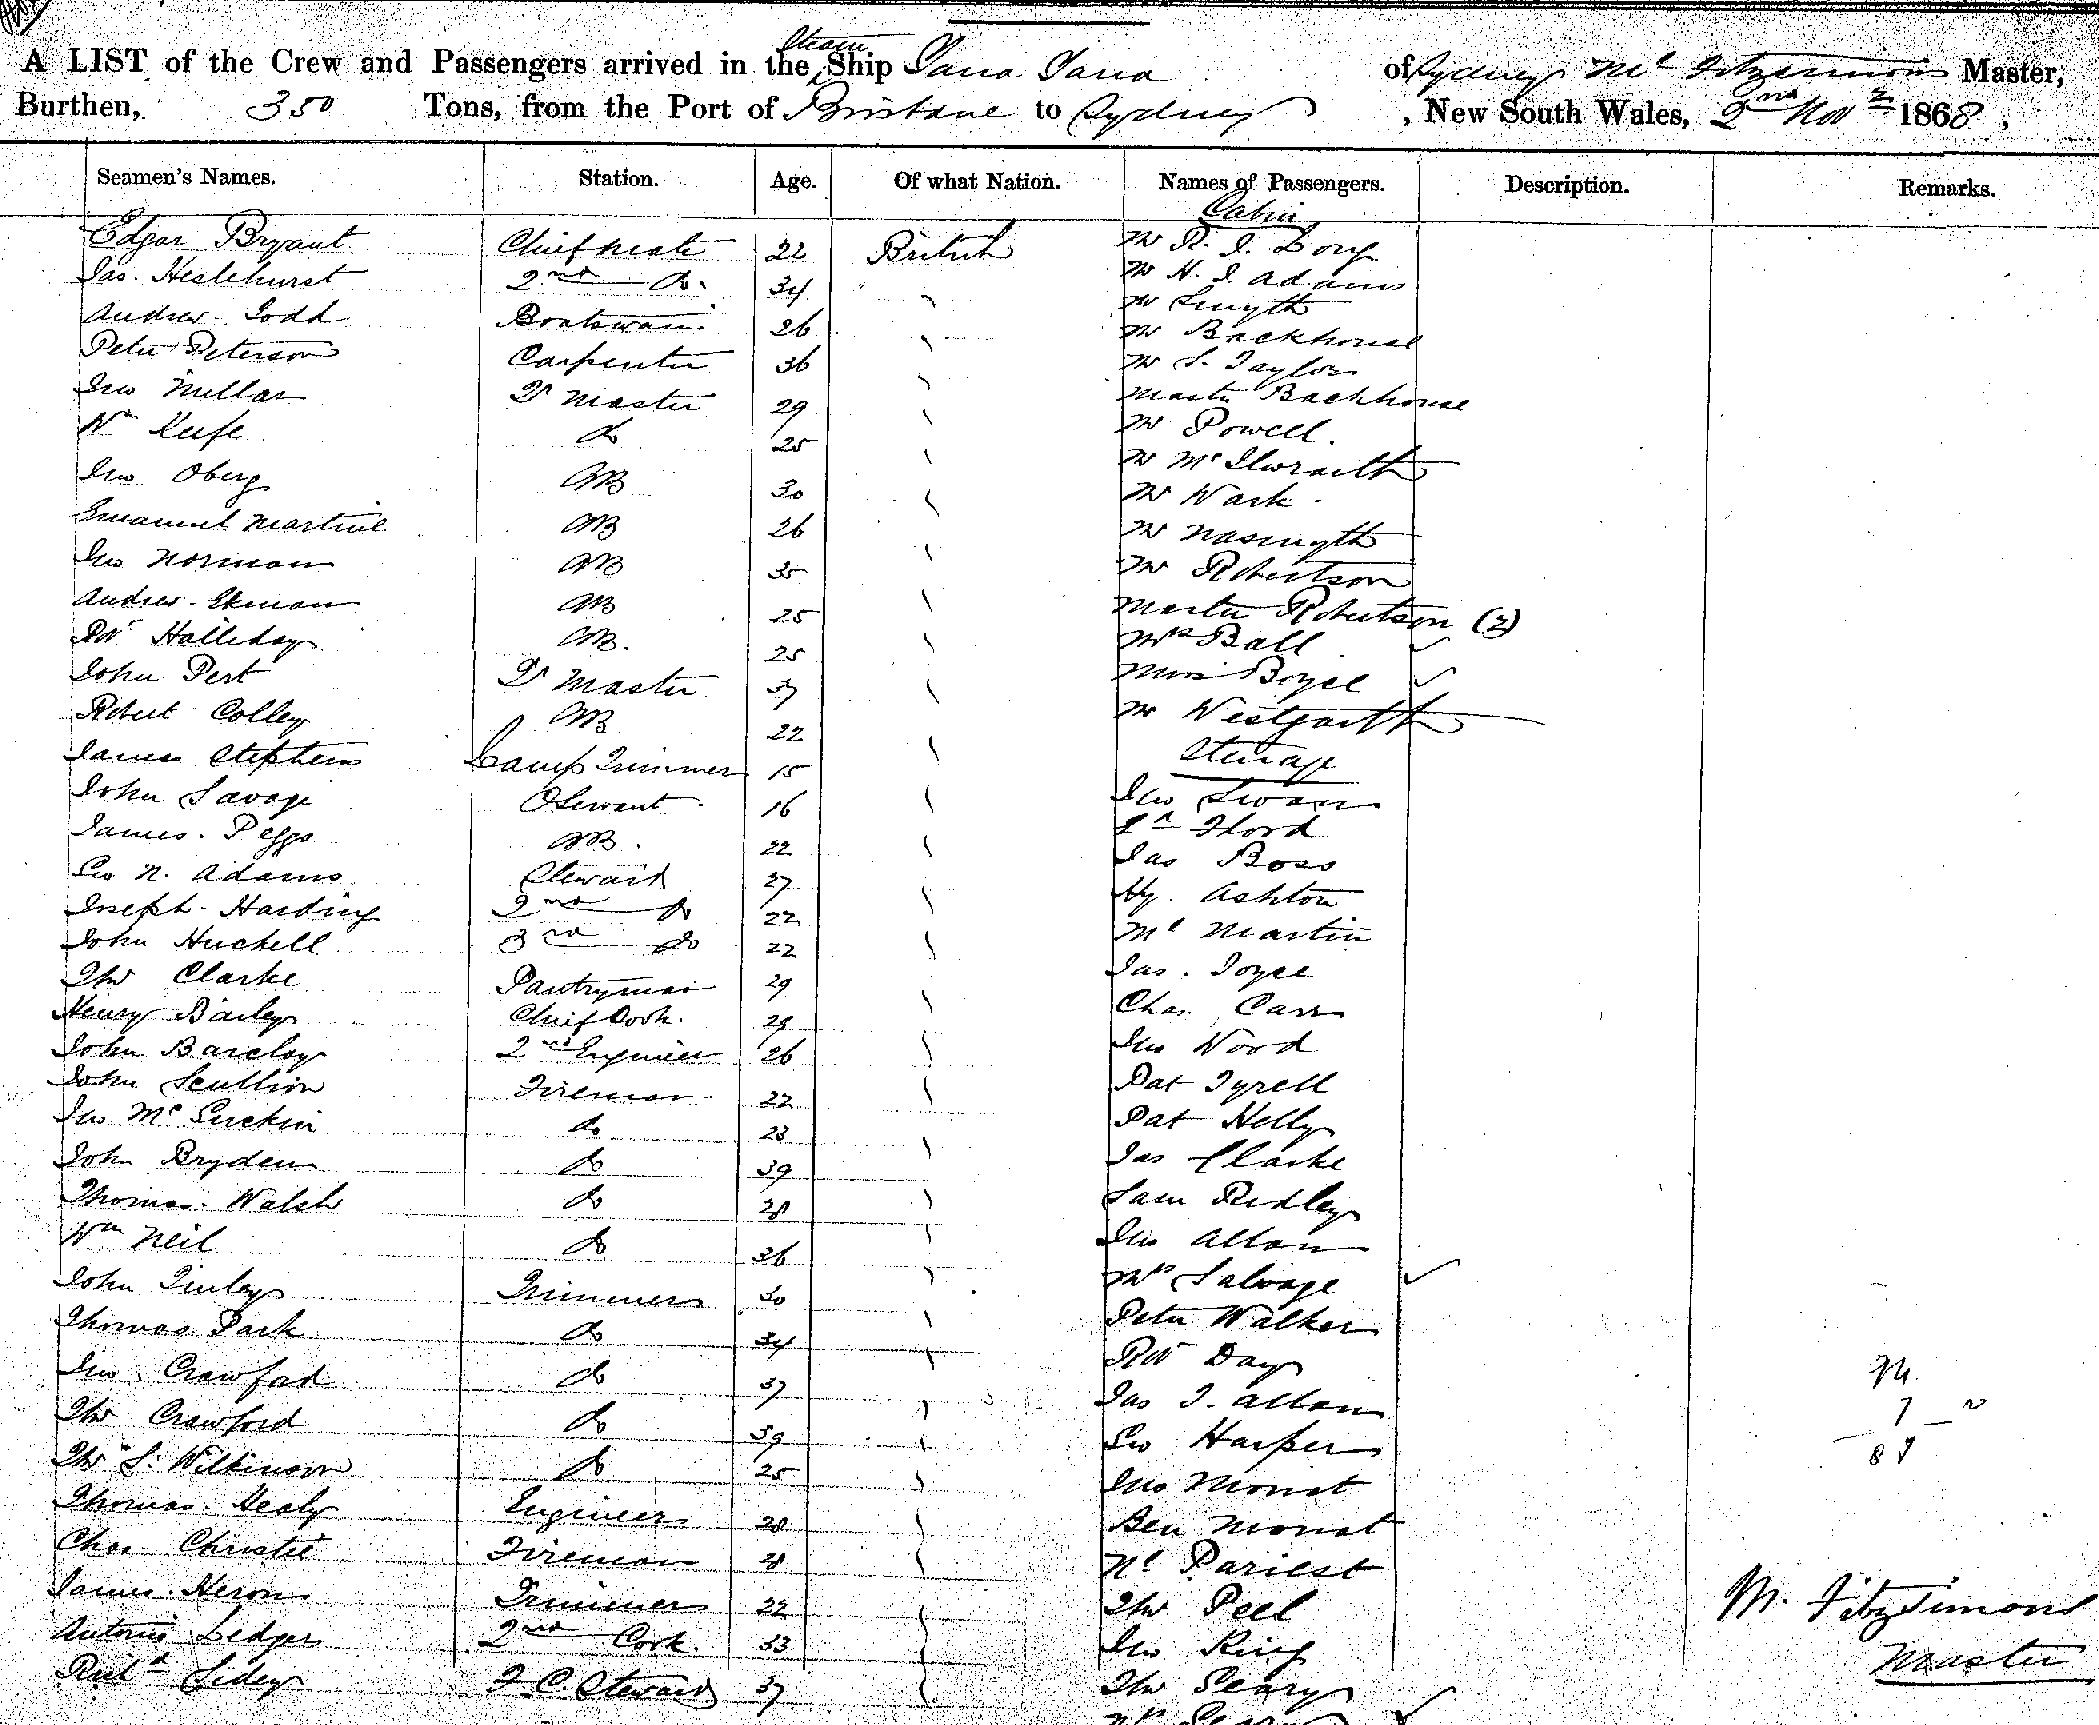 A LIST of the Crew and Passengers arrived in the Steam Ship Yarra Yarra of Sydney Ml Fitzsimons Master,
Burthen, 350 Tons, from the Port of Brisbane to Sydney , New South Wales, 2nd Novr 1868,
Seamen's Names. Station. Age. Of what Nation. Names of Passengers. Description. Remarks.
Cabin
Edgar Bryant Chief mate 22 British Mr R. I. Long
Jas. Heslehurst 2nd Do. 34 Mr H. I. Adams
Andrew Todd Boatswain 26 Mr Smyth
Mr Backhouse
Peter Peterson Carpenter 36 Mr S. Taylor
Jno Millar Qr Master 29 Master Backhouse
Wm Keefe Do 25 Mr Powell.
Jno Oberg AB 30 Mr McIlwraith
Mr Wark
Emanuel Martine AB 26 Mr Nasmyth
Jno Norman AB 35 Mr Robertson
Andrew Ekman AB 25 Master Robertson (2)
Rt Halliday AB. 25 Mrs Ball
John Pert Qr Master 37 Miss Boyce
Robert Colley AB 22 Mr Westgarth
James Stephens Lamp Trimmer 15 Steerage
John Savage O Servant 16 Jno Swan
James. Peggs AB. 22 Flord
Geo N. Adams Steward 27 Jas Boss
Joseph Harding 2nd Do 22 Hy. Ashton
John Huckell 3rd Do 22 Ml Martin
Thos Clarke Pantryman 29 Jas. Joyce
Henry Bailey Chief Cook. 29 Chas Carr
John Barclay 2nd Engineer 26 Jno Wood
John Scullion Fireman 22 Pat Tyrell
Jno Mc Do 23 Pat Kelly
John Bryden Do 39 Jas Clarke
Thomas Walsh Do 28 Sam Ridley
Wm Neil Do 36 Jno Allan
John Finley Trimmer 30 Mrs Salvage
Thomas Park Do 34 Peter Walker
Jno Crawford Do 37 RW Day
Thos Crawford Do 39 Jas J. Allan
Thos S. Wilkinson Do 25 Geo Harper
Thomas Healy Engineer 28 Jno Monat
Chas Christie Fireman 28 Ben Monat
James Heron Trimmer 22 Nl Pariest
Antonio Ledger 2nd Cook. 33 Thos Peel
Jno King
Richd Sidey F. C. Steward 37 Thos Geary
M. Fitzsimons
Master